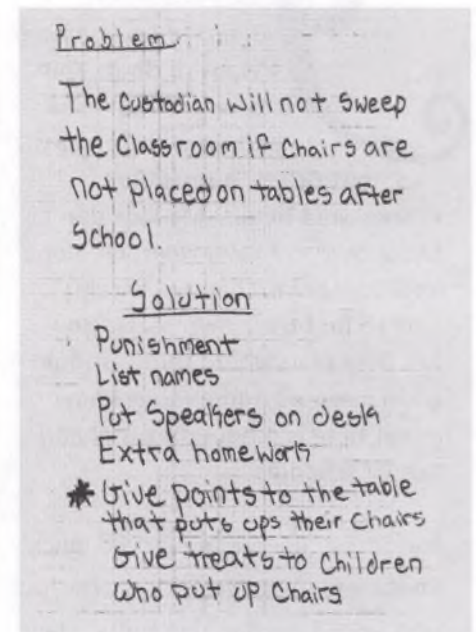 Problem
The Custodian will not sweep
the Classroom if Chairs are
not placed on tables after
School.
Solution
Punishment
List names
Put Speakers on desk
Extra homework
* Give points to the table
that puts ups their Chairs
Give treats to Children
who put up Chairs